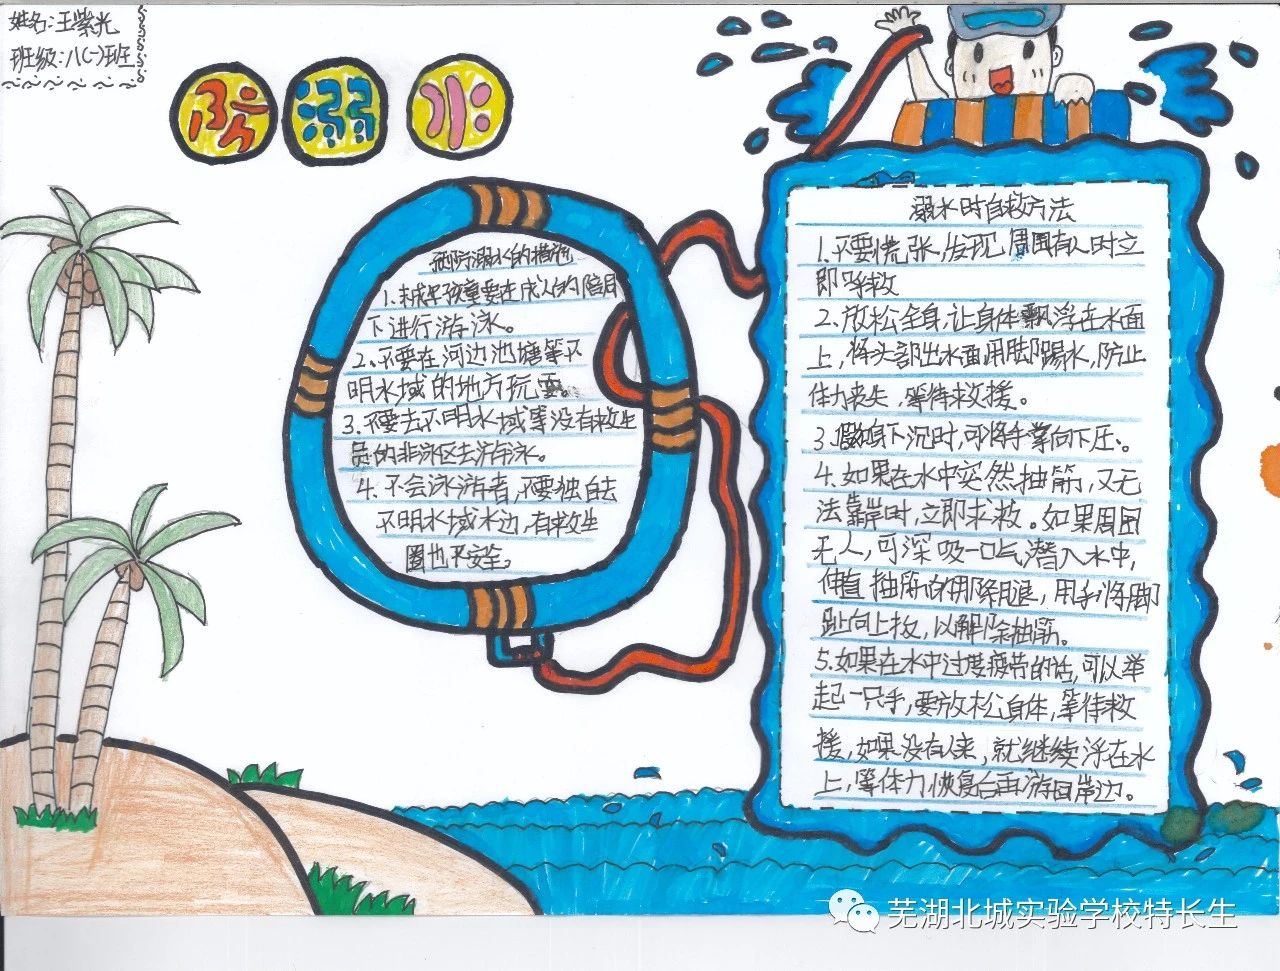 姓名:王紫光
班级:八(一)班
防溺水
预防溺水的措施
1.未成年孩童要在成人的陪同
下进行游泳。
2.不要在河边池塘等不
明水域的地方玩耍。
3.不要去不明水域等没有救生
员的非泳区去游泳。
4.不会泳游者,不要独自去
不明水域水边,有救生
圈也不安全。
溺水时自救方法
1.不要慌张,发现周围有人时立
即呼救
2.放松全身,让身体飘浮在水面
上,将头部出水面用脚踢水,防止
体力丧失,等待救援。
3.身下沉时,可将手掌向下压。
4.如果在水中突然抽筋,又无
法靠岸时,立即求救。如果周围
无人,可深吸一口气潜入水中,
伸直抽筋的那条腿,用手将脚
趾向上扳,以解除抽筋。
5.如果在水中过度疲劳的话,可以举
起一只手,要放松身体,等待救
援,如果没有人来,就继续浮在水
上,等体力恢复后再游回岸边。
芜湖北城实验学校特长生